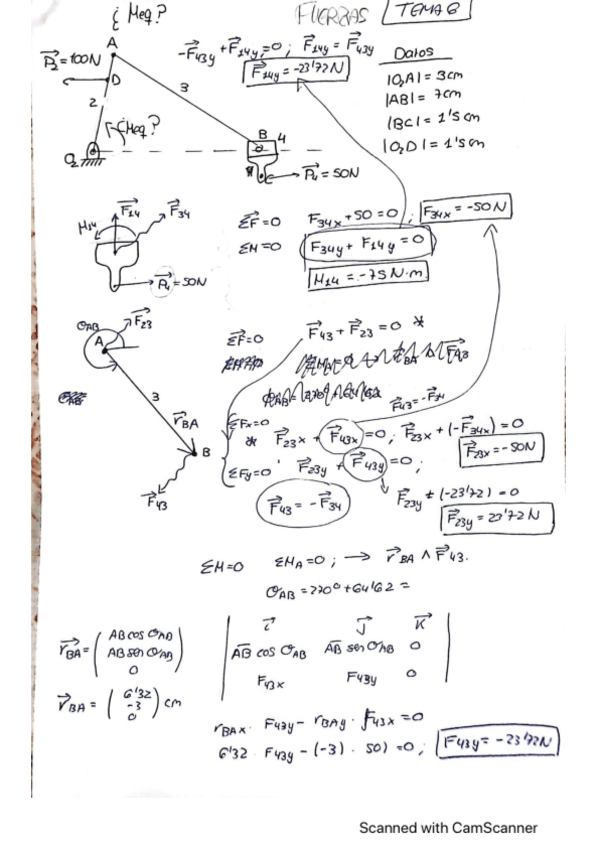 ¿ Meq?
FUERZAS
TEMA 6
A
-F43y + F14y = 0 ; F14y = F43y
F14y = -23'72N
P2 = 100N
D
3
2
¿Meq?
O2
B
4
P4 = 50N
Datos
|O2A| = 3cm
|AB| = 7cm
|BC| = 1'5cm
|O2D| = 1'5cm
M14
F14
F34
P4 = 50N
ΣF=0
F34x + 50 = 0 ;
F34x = -50N
ΣM=0
F34y + F14y = 0
M14 = -75 N·m
θAB
F23
A
3
rBA
B
F43
ΣF=0
F43 + F23 = 0 *
F43 = -F34
ΣFx=0
* F23x + F43x = 0 ; F23x + (-F34x) = 0
F23x = -50N
ΣFy=0
F23y + F43y = 0 ;
F43 = -F34
F23y + (-23'72) = 0
F23y = 23'72N
ΣM=0 ΣMA=0 ; → rBA ∧ F43.
θAB = 270° + 64'62 =
rBA = ( AB cos θAB
AB sen θAB
0 )
i j k
AB cos θAB AB sen θAB 0
F43x F43y 0
rBA = ( 6'32
-3
0 ) cm
rBAx · F43y - rBAy · F43x = 0
6'32 · F43y - (-3) · 50) = 0 ;
F43y = -23'72N
Scanned with CamScanner